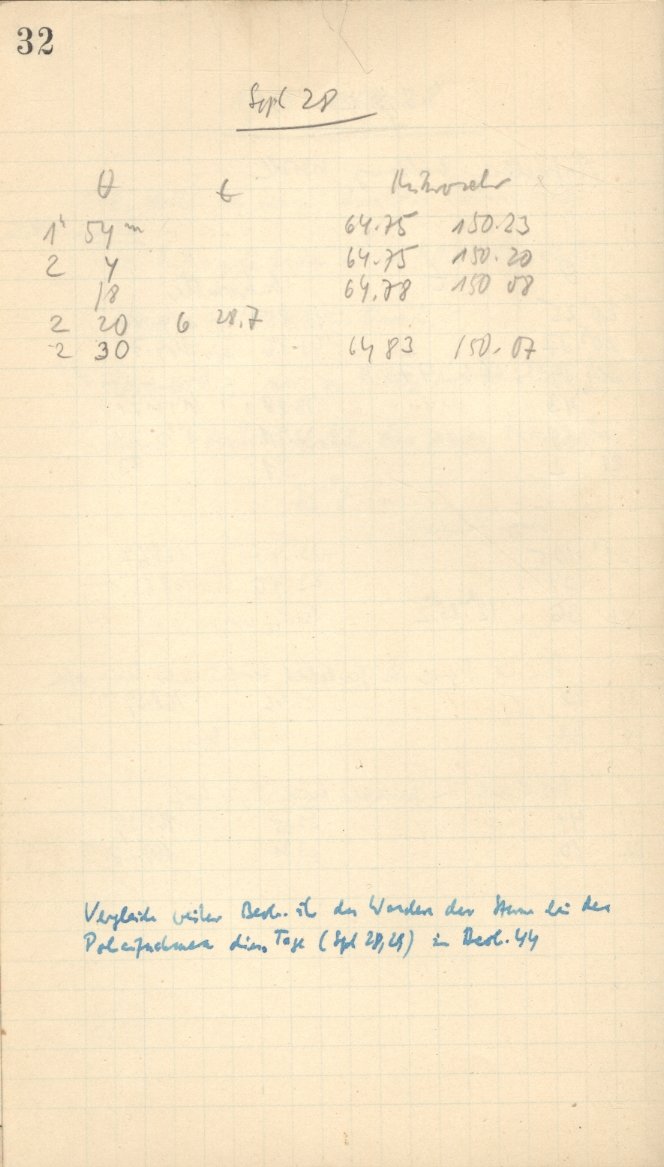 32
Sept 28
θ t Mikroskop
1h 54m 64.75 150.23
2 4 64.75 150.20
18 64.78 150 08
2 20 6 28.7
2 30 64 83 150.07
Vergleiche weitere Beob. üb das Wandern der Sterne bei den
Polaufnahmen dieser Tage (Sept 28, 29) in Beob. 44